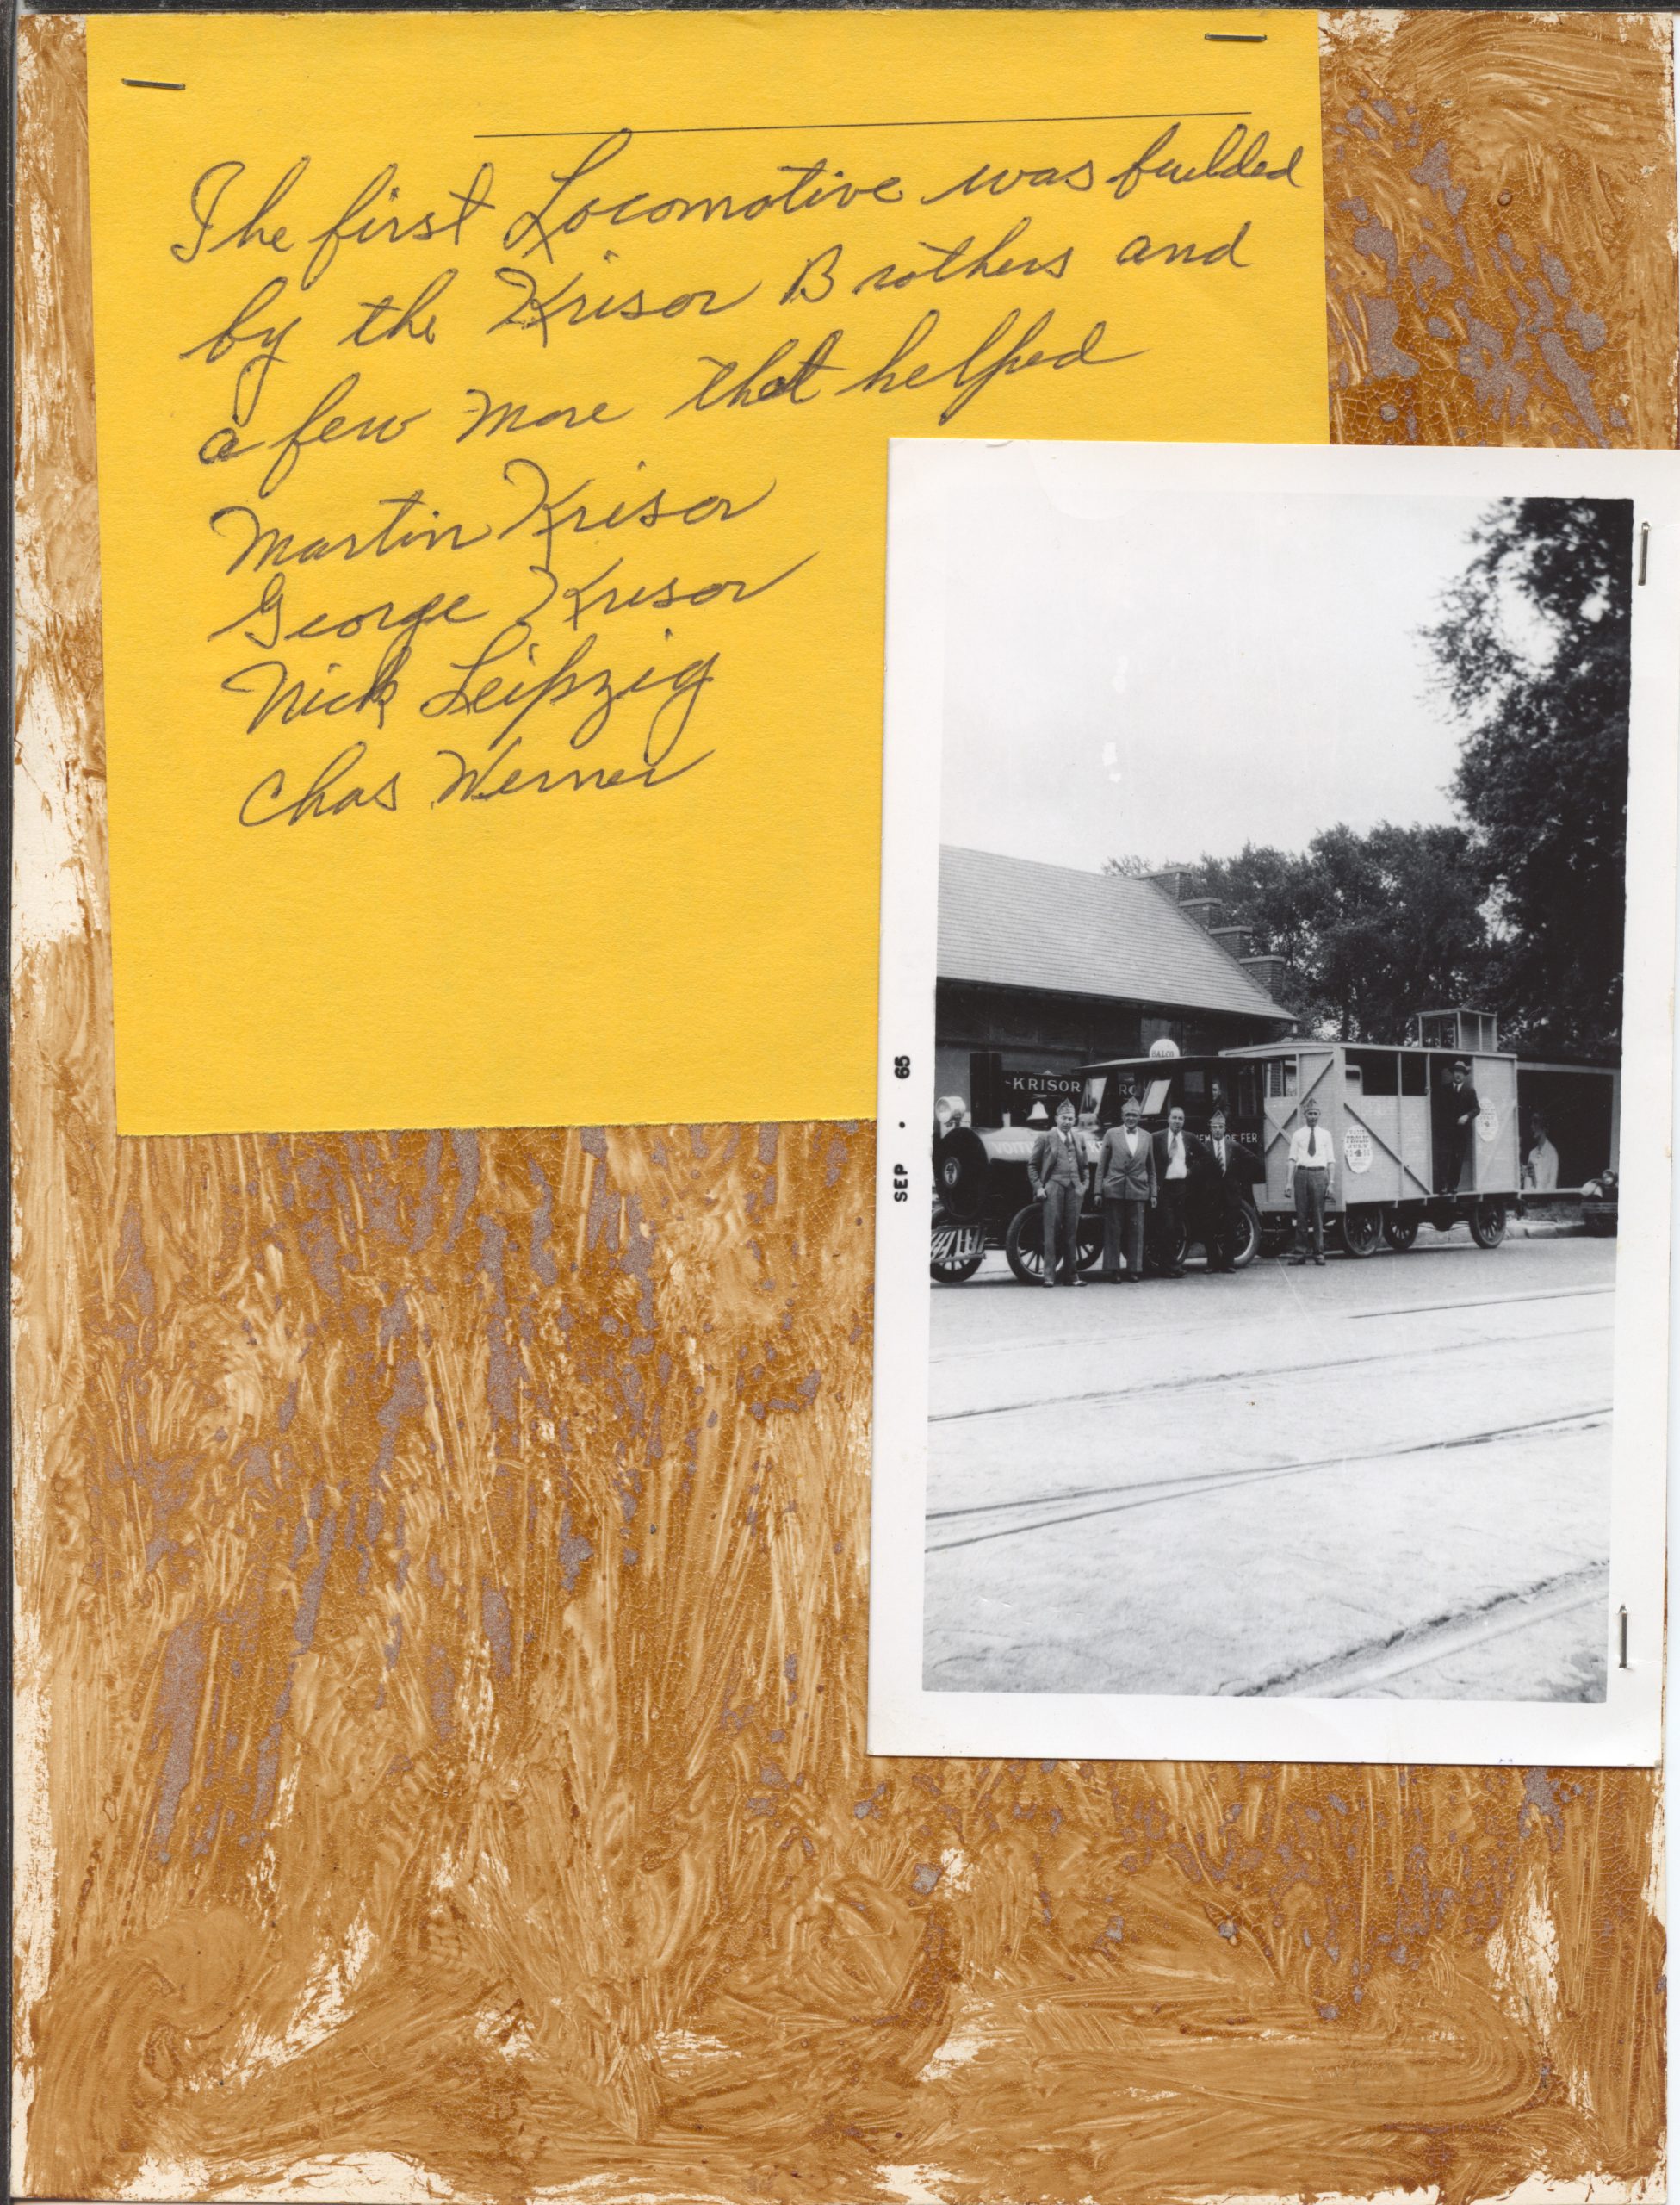 The first Locomotive was builded
by the Krisor Brothers and
a few more that helped
Martin Krisor
George Krisor
Nick Leipzig
Chas Werner
SEP • 65
-KRISOR